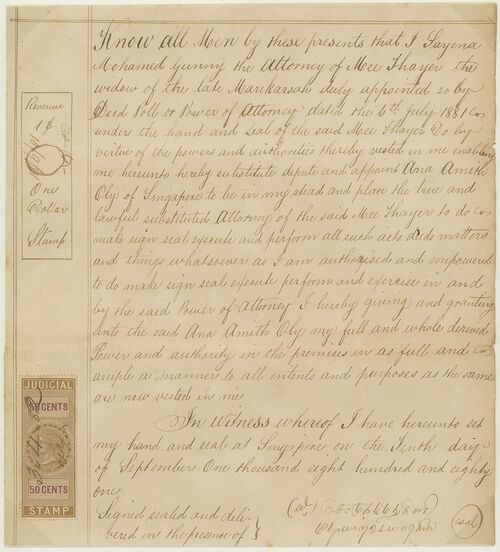 Know all Men by these presents that I Sayena
Mohamed Gunny the Attorney of Mee Thayer the
widow of the late Marikarsah duly appointed so by
Deed Poll or Power of Attorney dated the 6th July 1881
under the hand and seal of the said Mee Thayer Do by
virtue of the powers and authorities thereby vested in me enabling
me hereunto hereby substitute depute and appoint Ana Amith
Oly of Singapore to be in my stead and place the true and
lawful substituted Attorney of the said Mee Thayer to do
make sign seal execute and perform all such acts deeds matters
and things whatsoever as I am authorised and empowered
to do make sign seal execute perform and exercise in and
by the said Power of Attorney I hereby giving and granting
unto the said Ana Amith Oly my full and whole derived
Power and authority in the premises in as full and
ample a manner to all intents and purposes as the same
are now vested in me
In Witness whereof I have hereunto set
my hand and seal at Singapore on the Tenth day
of September One thousand eight hundred and eighty
one
Signed sealed and deli-
vered in the presence of }
(sd)
seal
Revenue
1 $
One
Dollar
Stamp
JUDICIAL
50 CENTS
50 CENTS
STAMP